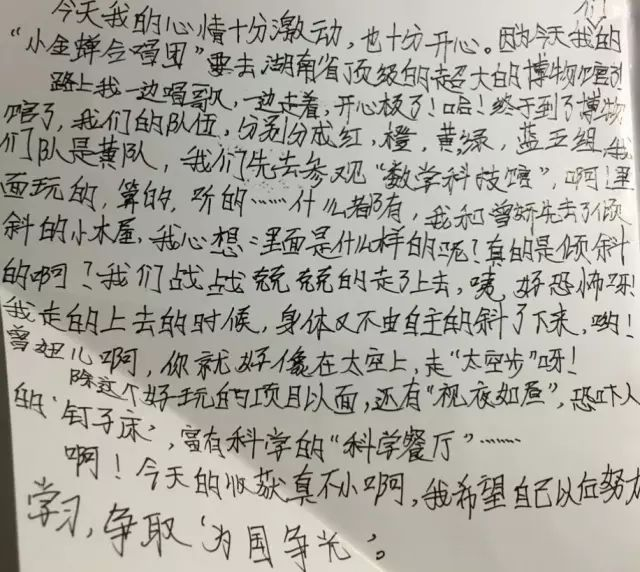 今天我的心情十分激动，也十分开心。因为今天我们的
“小金蝉合唱团”要去湖南省顶级的超大的博物馆了
路上我一边唱歌，一边走着，开心极了！哈！终于到了博物
馆了，我们的队伍，分别分成红，橙，黄，绿，蓝五组，我
们队是黄队，我们先去参观“数学科技馆”，啊！里
面玩的，算的，听的……什么都有，我和曾妍先去了倾
斜的小木屋，我心想：里面是什么样的呢？真的是倾斜
的啊？我们战战兢兢的走了上去，咦，好恐怖呀！
我走的上去的时候，身体又不由自主的斜了下来，哟！
曾妞儿啊，你就好像在太空上，走“太空步”呀！
除这个好玩的项目以面，还有“视夜如昼”，恐吓人
的‘钉子床’，富有科学的“科学餐厅”……
啊！今天的收获真不小啊，我希望自己以后努力
学习，争取‘为国争光’。